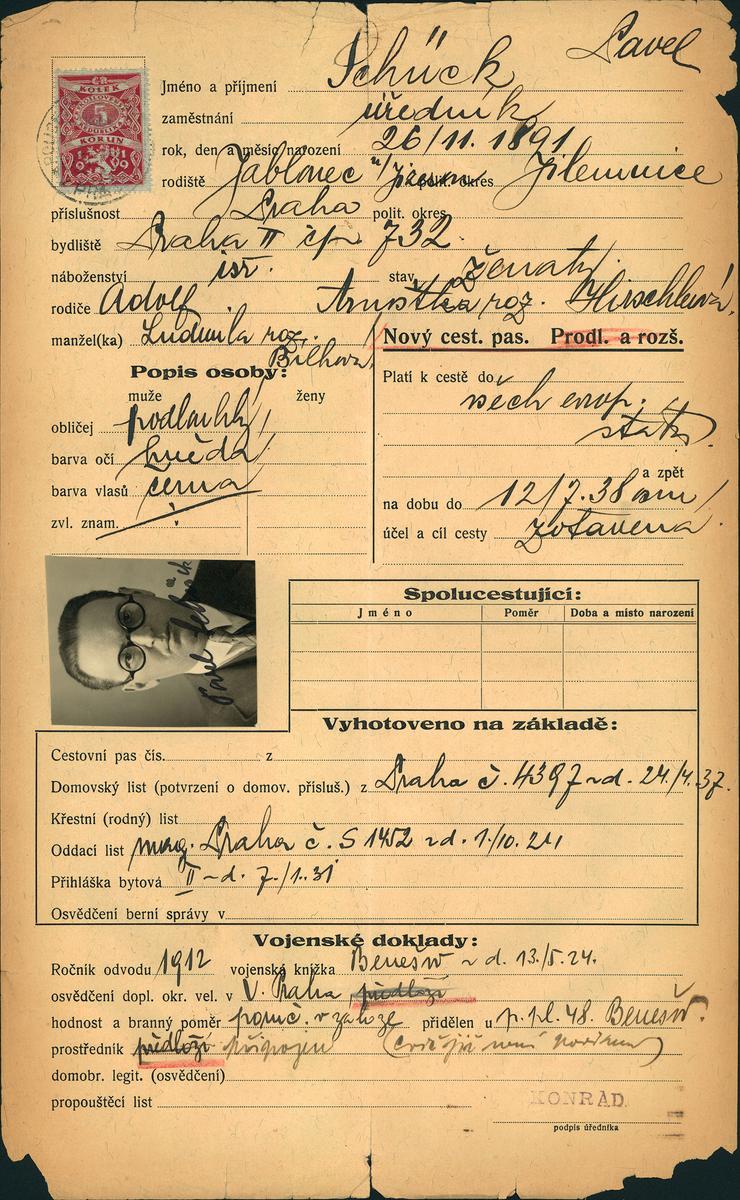 ČR
KOLEK
5
KORUN
Jméno a příjmení Schück Pavel
zaměstnání úředník
rok, den a měsíc narození 26/11. 1891
rodiště Jablonec n/Jizerou polit. okres Jilemnice
příslušnost Praha polit. okres
bydliště Praha II čp. 732.
náboženství isr. stav ženatý.
rodiče Adolf. Arnoštka roz. Hirschlová.
manžel(ka) Ludmila roz. Bílková
Nový cest. pas. Prodl. a rozš.
Popis osoby:
muže ženy
obličej podlouhlý
barva očí hnědá
barva vlasů černá
zvl. znam.
Platí k cestě do všech evrop.
států.
a zpět
na dobu do 12/7. 38
účel a cíl cesty zotavená.
Pavel Schück
Spolucestující:
Jméno Poměr Doba a místo narození
Vyhotoveno na základě:
Cestovní pas čís. z
Domovský list (potvrzení o domov. přísluš.) z Praha č. 4397 z d. 24./4. 37.
Křestní (rodný) list
Oddací list mag. Praha č. S 1452 z d. 1./10. 24
Přihláška bytová II z d. 7./1. 31
Osvědčení berní správy v
Vojenské doklady:
Ročník odvodu 1912 vojenská knížka Benešov z d. 13./5. 24.
osvědčení dopl. okr. vel. v V. Praha, předloží
hodnost a branný poměr poruč. v záloze přidělen u p. pl. 48. Benešov.
prostředník předloží připojen
domobr. legit. (osvědčení)
propouštěcí list
KONRÁD.
podpis úředníka